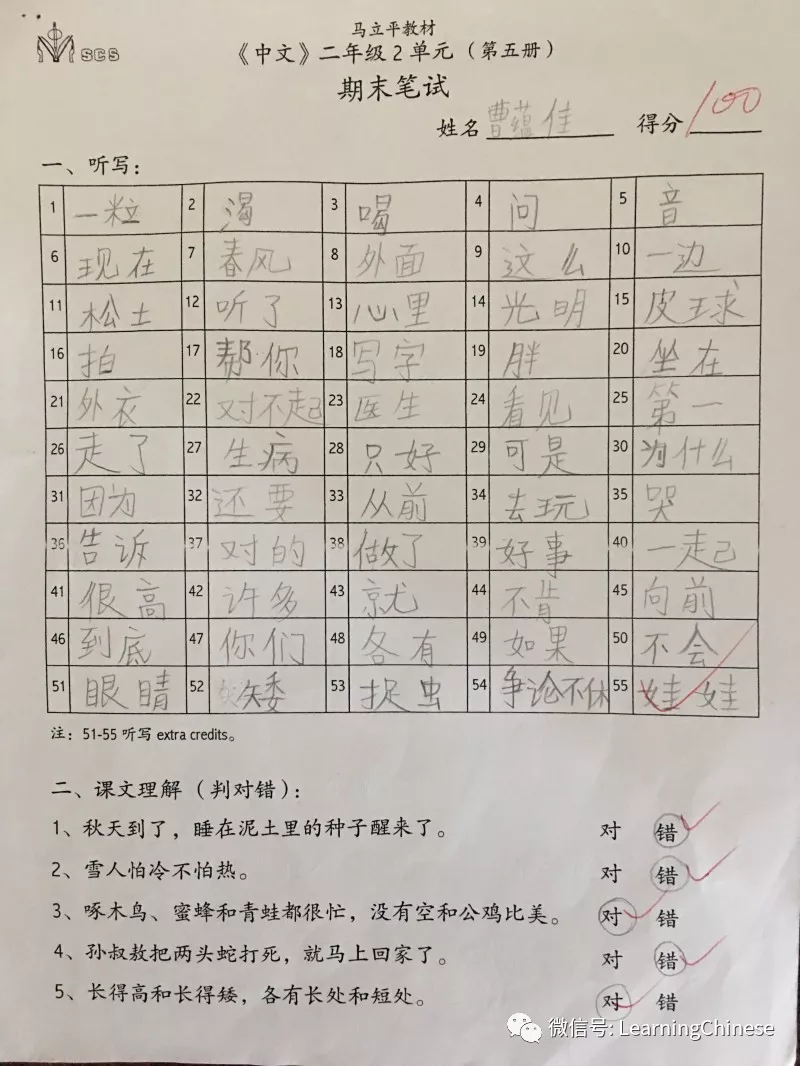 SCS
马立平教材
《中文》二年级2单元（第五册）
期末笔试
姓名 曹蕴佳 得分 100
一、听写：
1 一粒 2 渴 3 喝 4 问 5 音
6 现在 7 春风 8 外面 9 这么 10 一边
11 松土 12 听了 13 心里 14 光明 15 皮球
16 拍 17 帮你 18 写字 19 胖 20 坐在
21 外衣 22 对不起 23 医生 24 看见 25 第一
26 走了 27 生病 28 只好 29 可是 30 为什么
31 因为 32 还要 33 从前 34 去玩 35 哭
36 告诉 37 对的 38 做了 39 好事 40 一起
41 很高 42 许多 43 就 44 不肯 45 向前
46 到底 47 你们 48 各有 49 如果 50 不会
51 眼睛 52 矮 53 捉虫 54 争论不休 55 娃娃
注：51-55 听写 extra credits。
二、课文理解（判对错）：
1、秋天到了，睡在泥土里的种子醒来了。 对 错
2、雪人怕冷不怕热。 对 错
3、啄木鸟、蜜蜂和青蛙都很忙，没有空和公鸡比美。 对 错
4、孙叔敖把两头蛇打死，就马上回家了。 对 错
5、长得高和长得矮，各有长处和短处。 对 错
微信号: LearningChinese